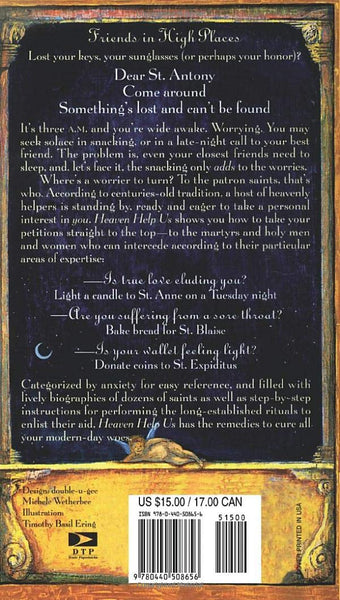 Friends in High Places
Lost your keys, your sunglasses (or perhaps your honor)?
Dear St. Antony
Come around
Something's lost and can't be found
It's three A.M. and you're wide awake. Worrying. You may
seek solace in snacking, or in a late-night call to your best
friend. The problem is, even your closest friends need to
sleep, and, let's face it, the snacking only adds to the worries.
Where's a worrier to turn? To the patron saints, that's
who. According to centuries-old tradition, a host of heavenly
helpers is standing by, ready and eager to take a personal
interest in you. Heaven Help Us shows you how to take your
petitions straight to the top—to the martyrs and holy
men and women who can intercede according to their particular
areas of expertise:
—Is true love eluding you?
Light a candle to St. Anne on a Tuesday night
—Are you suffering from a sore throat?
Bake bread for St. Blaise
—Is your wallet feeling light?
Donate coins to St. Expiditus
Categorized by anxiety for easy reference, and filled with
lively biographies of dozens of saints as well as step-by-step
instructions for performing the long-established rituals to
enlist their aid, Heaven Help Us has the remedies to cure all
your modern-day woes.
Design: double-u-gee
Michele Wetherbee
Illustration:
Timothy Basil Ering
DTP
Trade Paperbacks
US $15.00 / 17.00 CAN
ISBN 978-0-440-50865-6
51500
9 780440 508656
PRINTED IN USA